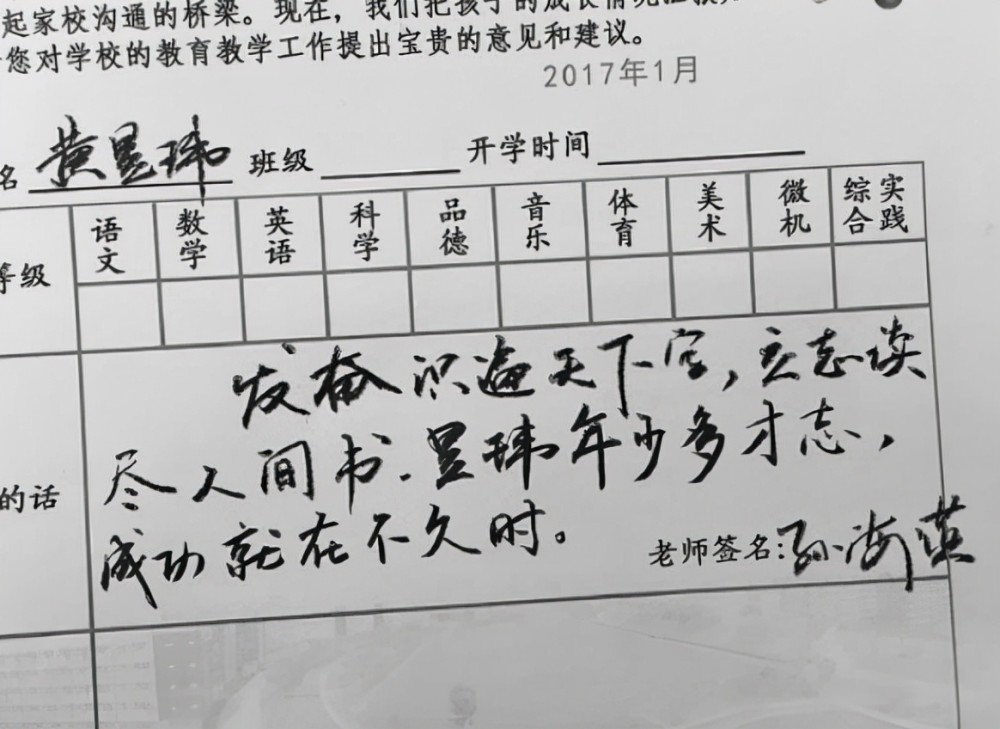 起家校沟通的桥梁。现在，我们把孩子的成长情况
您对学校的教育教学工作提出宝贵的意见和建议。
2017年1月
名 黄昱玮 班级 开学时间
等级 语文 数学 英语 科学 品德 音乐 体育 美术 微机 综合实践
发奋识遍天下字，立志读
尽人间书.昱玮年少多才志，
成功就在不久时。
的话
老师签名:孙海英